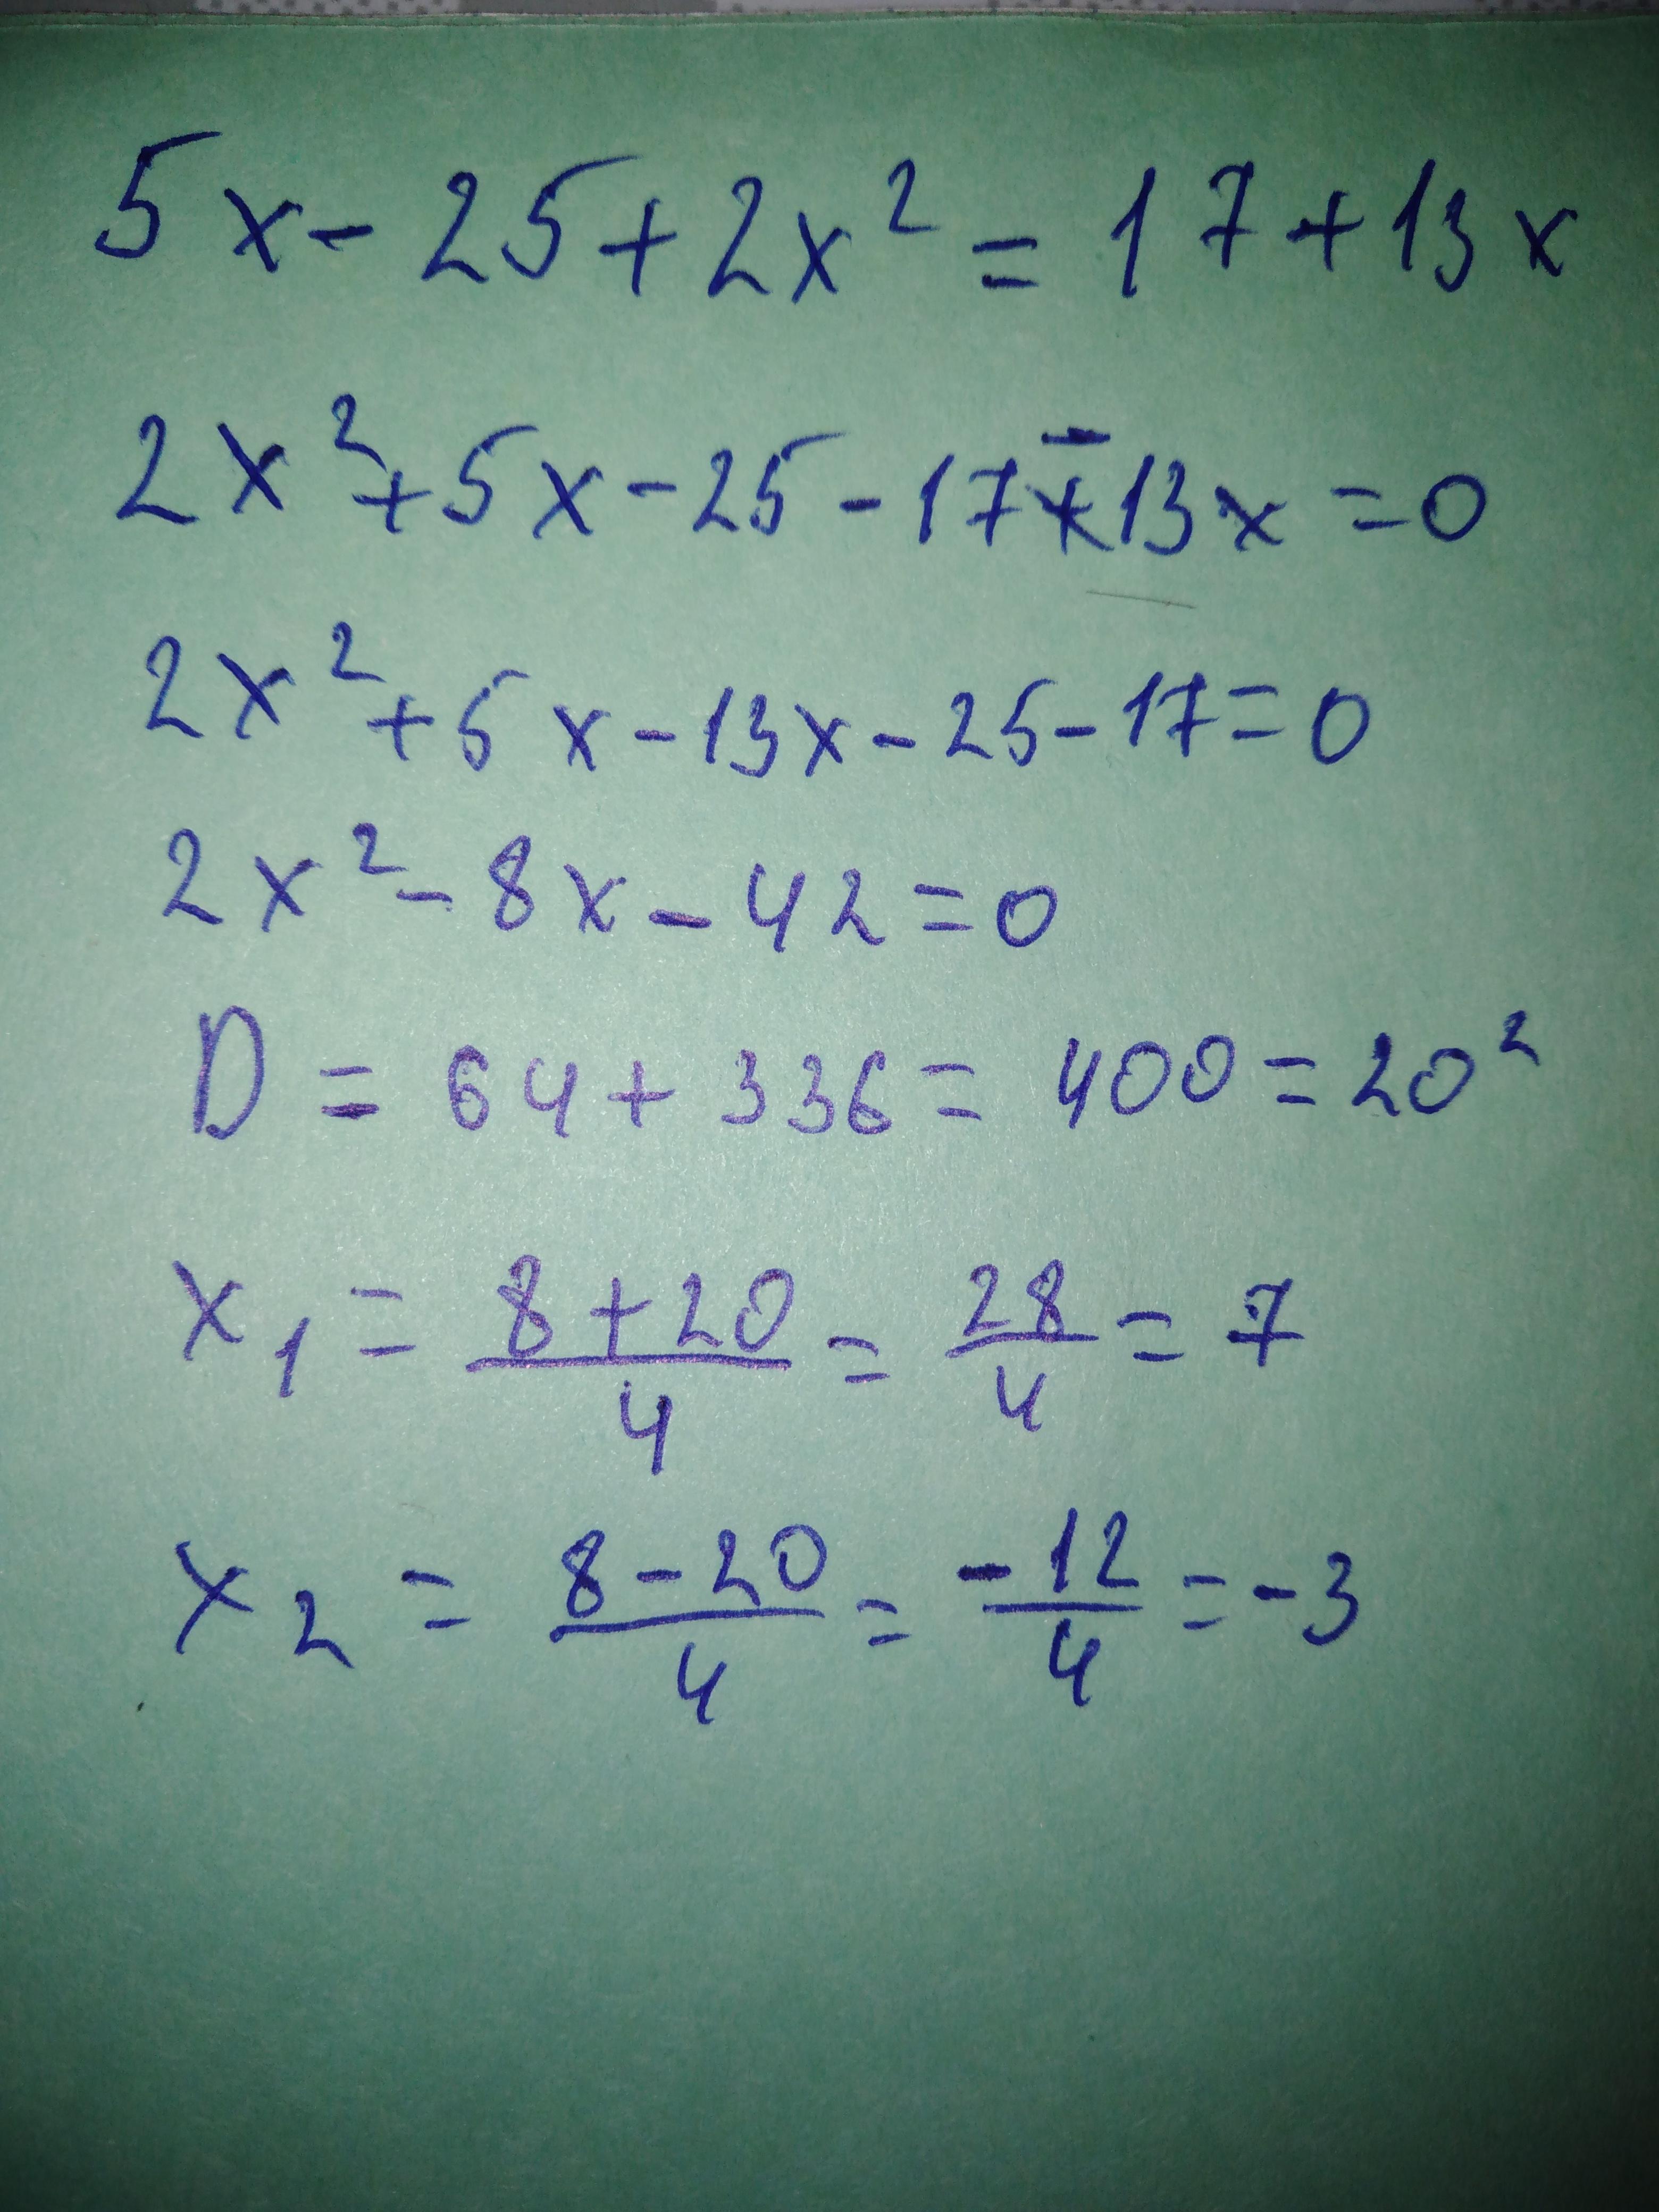 5x - 25 + 2x² = 17 + 13x
2x² + 5x - 25 - 17 - 13x = 0
2x² + 5x - 13x - 25 - 17 = 0
2x² - 8x - 42 = 0
D = 64 + 336 = 400 = 20²
x₁ = (8 + 20)/4 = 28/4 = 7
x₂ = (8 - 20)/4 = -12/4 = -3